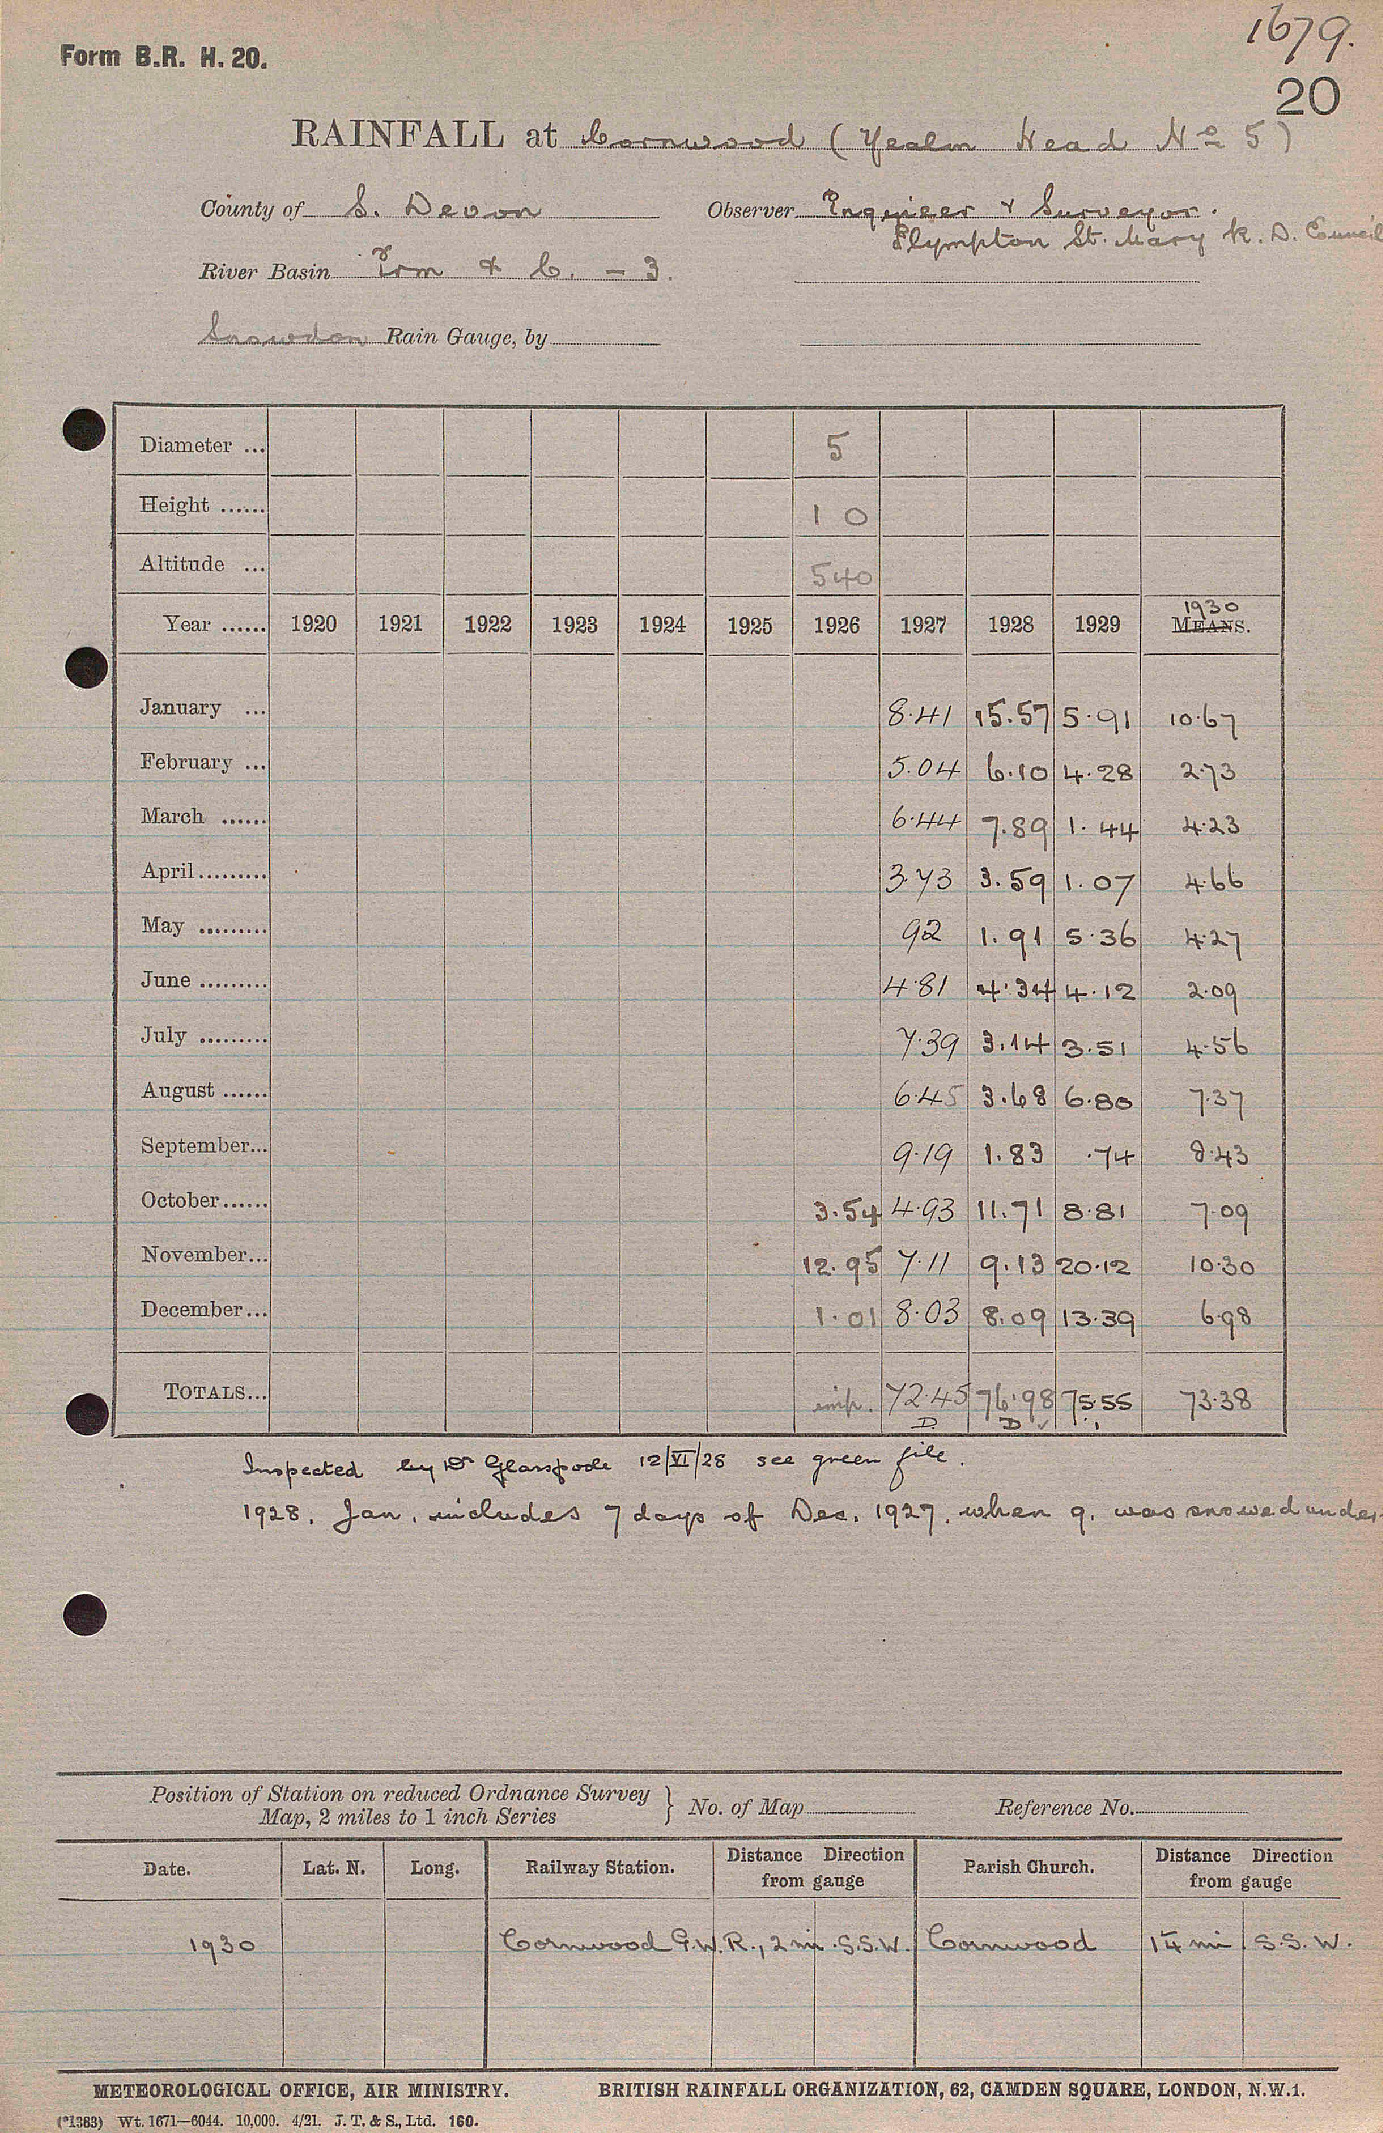 1679.
Form B.R. H. 20.
20
RAINFALL at Cornwood (Yealm Head No 5)
County of S. Devon Observer Engineer & Surveyor.
Plympton St. Mary R. D. Council
River Basin Erm & C. – 3.
Snowdon Rain Gauge, by
Diameter ... 5
Height ...... 1 0
Altitude ... 540
1930
Year ...... 1920 1921 1922 1923 1924 1925 1926 1927 1928 1929 MEANS.
January ... 8.41 15.57 5.91 10.67
February ... 5.04 6.10 4.28 2.73
March ...... 6.44 7.89 1.44 4.23
April......... 3.73 3.59 1.07 4.66
May ......... 92 1.91 5.36 4.27
June ......... 4.81 4.34 4.12 2.09
July ......... 7.39 3.14 3.51 4.56
August ...... 6.45 3.68 6.80 7.37
September... 9.19 1.83 .74 8.43
October...... 3.54 4.93 11.71 8.81 7.09
November... 12.95 7.11 9.13 20.12 10.30
December... 1.01 8.03 8.09 13.39 6.98
TOTALS... imp. 72.45 76.98 75.55 73.38
D. D ✓
Inspected by Dr Glasspoole 12/VI/28 see green file.
1928. Jan. includes 7 days of Dec. 1927. when g. was snowed under
Position of Station on reduced Ordnance Survey
Map, 2 miles to 1 inch Series } No. of Map Reference No.
Date. Lat. N. Long. Railway Station. Distance Direction from gauge Parish Church. Distance Direction from gauge
1930 Cornwood G.W.R., 2 mi. S.S.W. Cornwood 1¼ mi. S.S.W.
METEOROLOGICAL OFFICE, AIR MINISTRY. BRITISH RAINFALL ORGANIZATION, 62, CAMDEN SQUARE, LONDON, N.W.1.
(*1383) Wt. 1671—6044. 10,000. 4/21. J. T. & S., Ltd. 160.